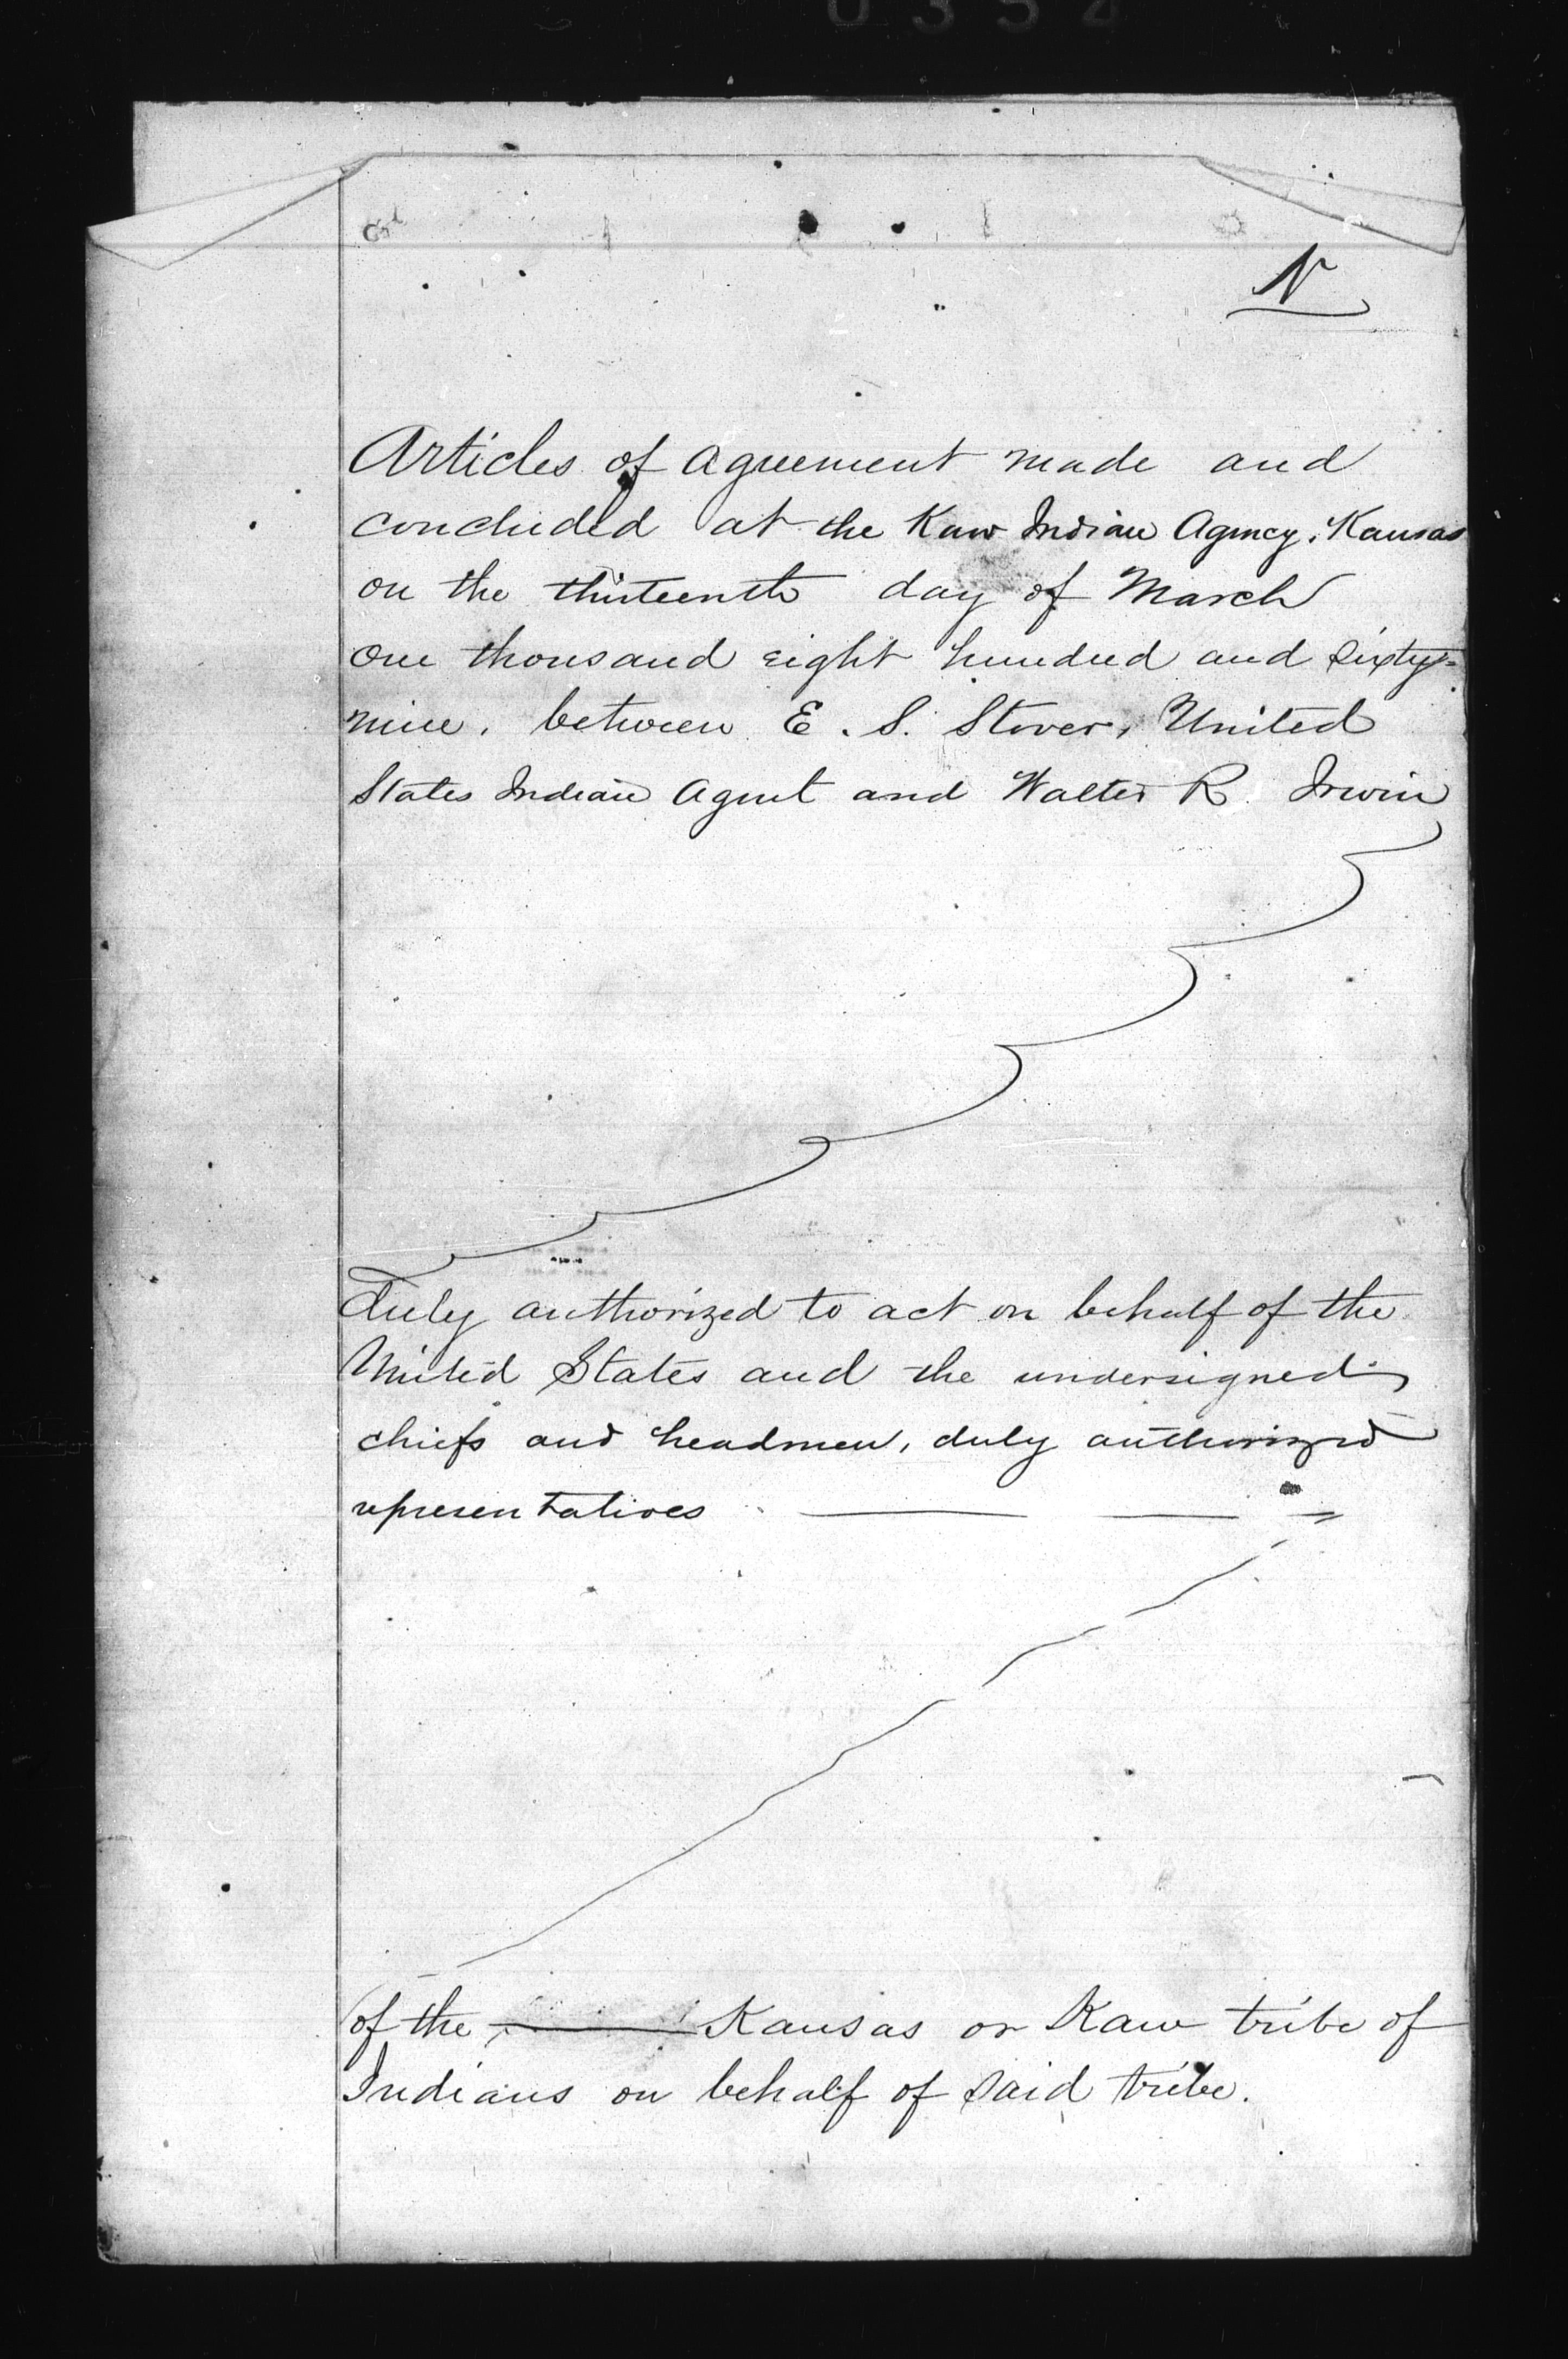 N
Articles of Agreement made and
concluded at the Kaw Indian Agency, Kansas
on the thirteenth day of March
one thousand eight hundred and sixty=
nine, between E. S. Stover, United
States Indian Agent and Walter R. Irwin
duly authorized to act on behalf of the
United States and the undersigned,
chiefs and headmen, duly authorized
representatives
of the Kansas or Kaw tribe of
Indians on behalf of said tribe.